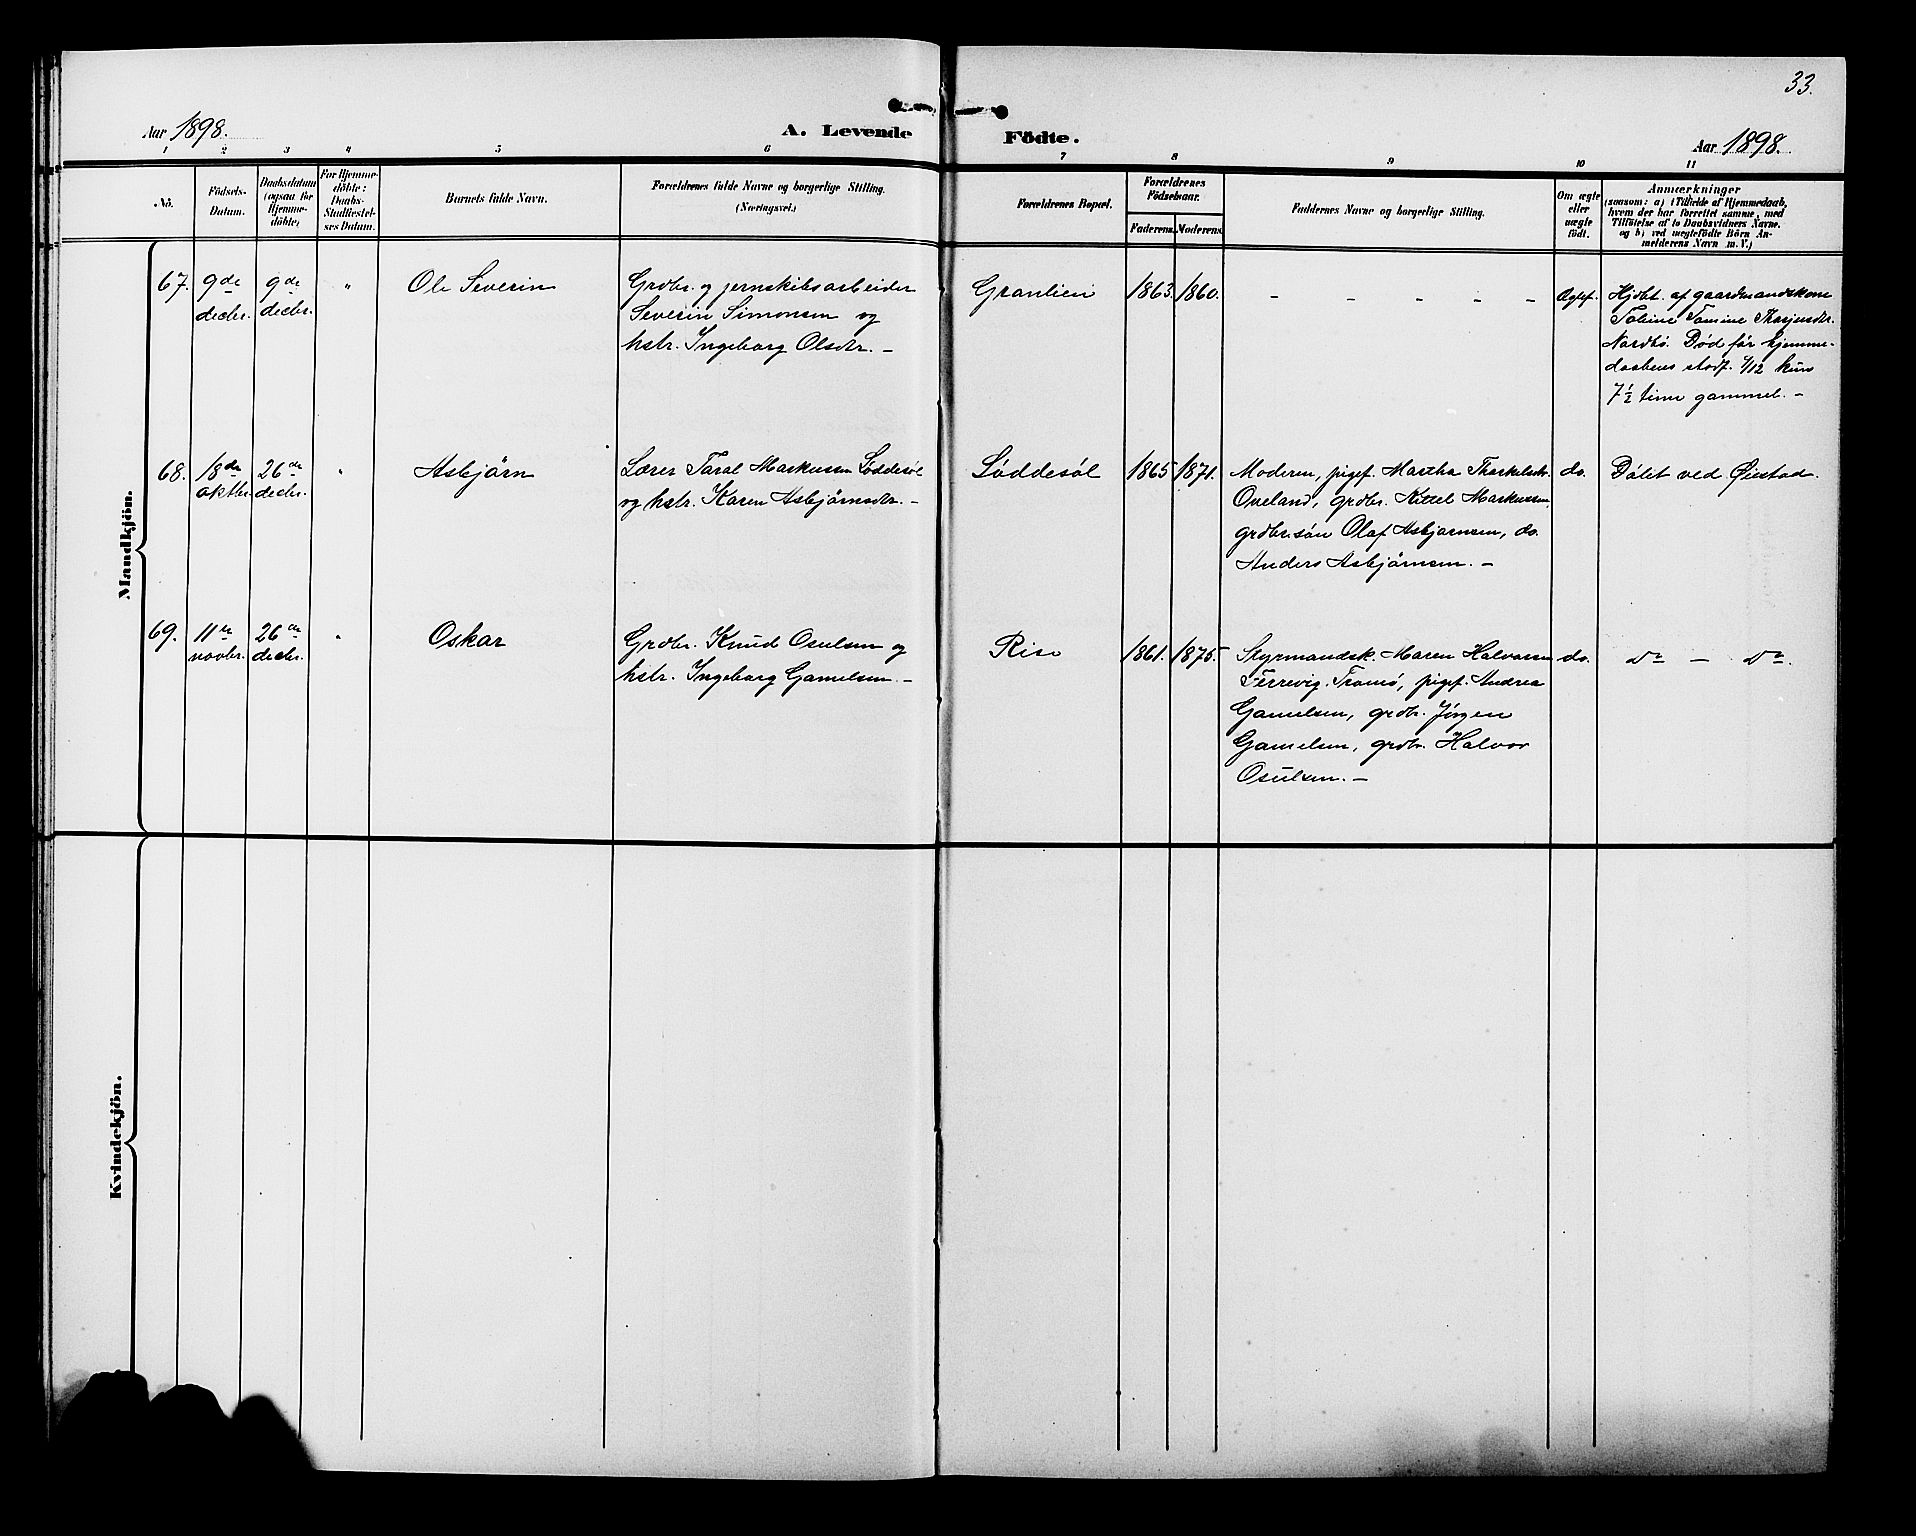 33.
Aar 1898.
A. Levende Födte.
Aar 1898.
1 2 3 4 5 6 7 8 9 10 11
No.
Födsels-Datum.
Daabsdatum (ogsaa for Hjemme-döbte)
For Hjemme-döbte: Daabs-Stadfæstel-ses Datum.
Barnets fulde Navn.
Forældrenes fulde Navne og borgerlige Stilling.
(Næringsvei.)
Forældrenes Bopæl.
Forældrenes Födselsaar.
Faderens. Moderens.
Faddernes Navne og borgerlige Stilling.
Om ægte eller uægte födt.
Anmærkninger
(saasom: a) i Tilfælde af Hjemmedaab,
hvem der har forrettet samme, med
Tilföielse af to Daabsvidners Navne.
og b) ved uægtefödte Börn An-
melderens Navn m. V.)
Mandkjön.
67.
9de
decbr.
9de
decbr.
"
Ole Severin
Grdbr. og jernskibsarbeider
Severin Simonsen og
hstr. Ingeborg Olsdtr. –
Granlien
1863. 1860.
– – – – –
Ægtef.
Hjdbt. af gaardmandskone
Tobine Tomine
Nordbø. Død før hjemme-
daabens stadf. 9/12 kun
7½ time gammel. –
68.
18de
oktbr.
26de
decbr.
"
Asbjørn
Lærer Taral Markussen Løddesøl
og hstr. Karen Asbjørnsdtr. –
Løddesøl
1865 1871.
Moderen, pigef. Martha Thorkelsdtr.
Oveland, grdbr. Kittel Markussen,
grdbr.søn Olaf Asbjørnsen, do.
Anders Asbjørnsen. –
do.
Døbt ved Øiestad.
69.
11te
novbr.
26de
decbr.
"
Oskar
Grdbr. Knud Osulsen og
hstr. Ingeborg Gamelsen. –
Rise
1861. 1875.
Styrmandsk. Maren Halvorsen
Færrevig. Tromø, pigef. Andrea
Gamelsen, grdbr. Jørgen
Gamelsen, grdbr. Halvor
Osulsen. –
do.
Do – Do.
Kvindekjön.